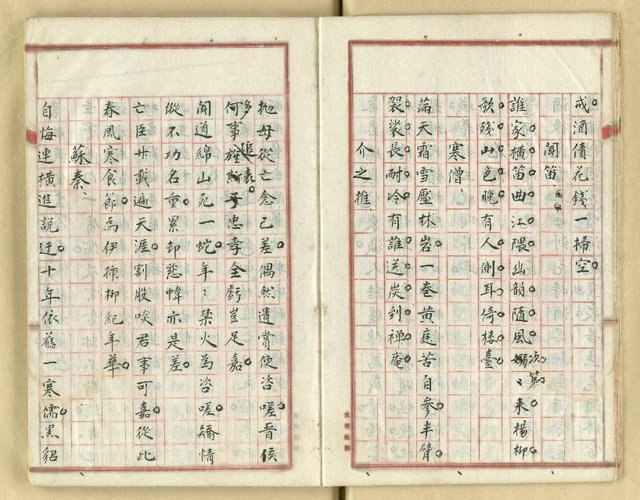 戒酒債花錢一掃空。
聞笛
誰家橫笛曲江隈。幽韻随風次第來。楊柳
歌殘山色晚。有人側耳倚樓臺。
寒僧、
滿天霜雪壓林岩。一卷黄庭苦自參。半臂
袈裟長耐冷。有誰送炭到禅庵。
介之推
抛母從亡念已差。偶然遺賞便咨嗟。晋侯
何事旌忠孝全虧豈足嘉。
聞道綿山死一蛇。年〻禁火為咨嗟。矯情
縱不功名重。累却慈幃亦是差。
亡臣廿載遍天涯。割股啖君事可嘉。從此
春風寒食節。為伊挿柳紀年華。
蘇秦、
自悔連橫進説迂。十年依舊一寒儒。黑貂